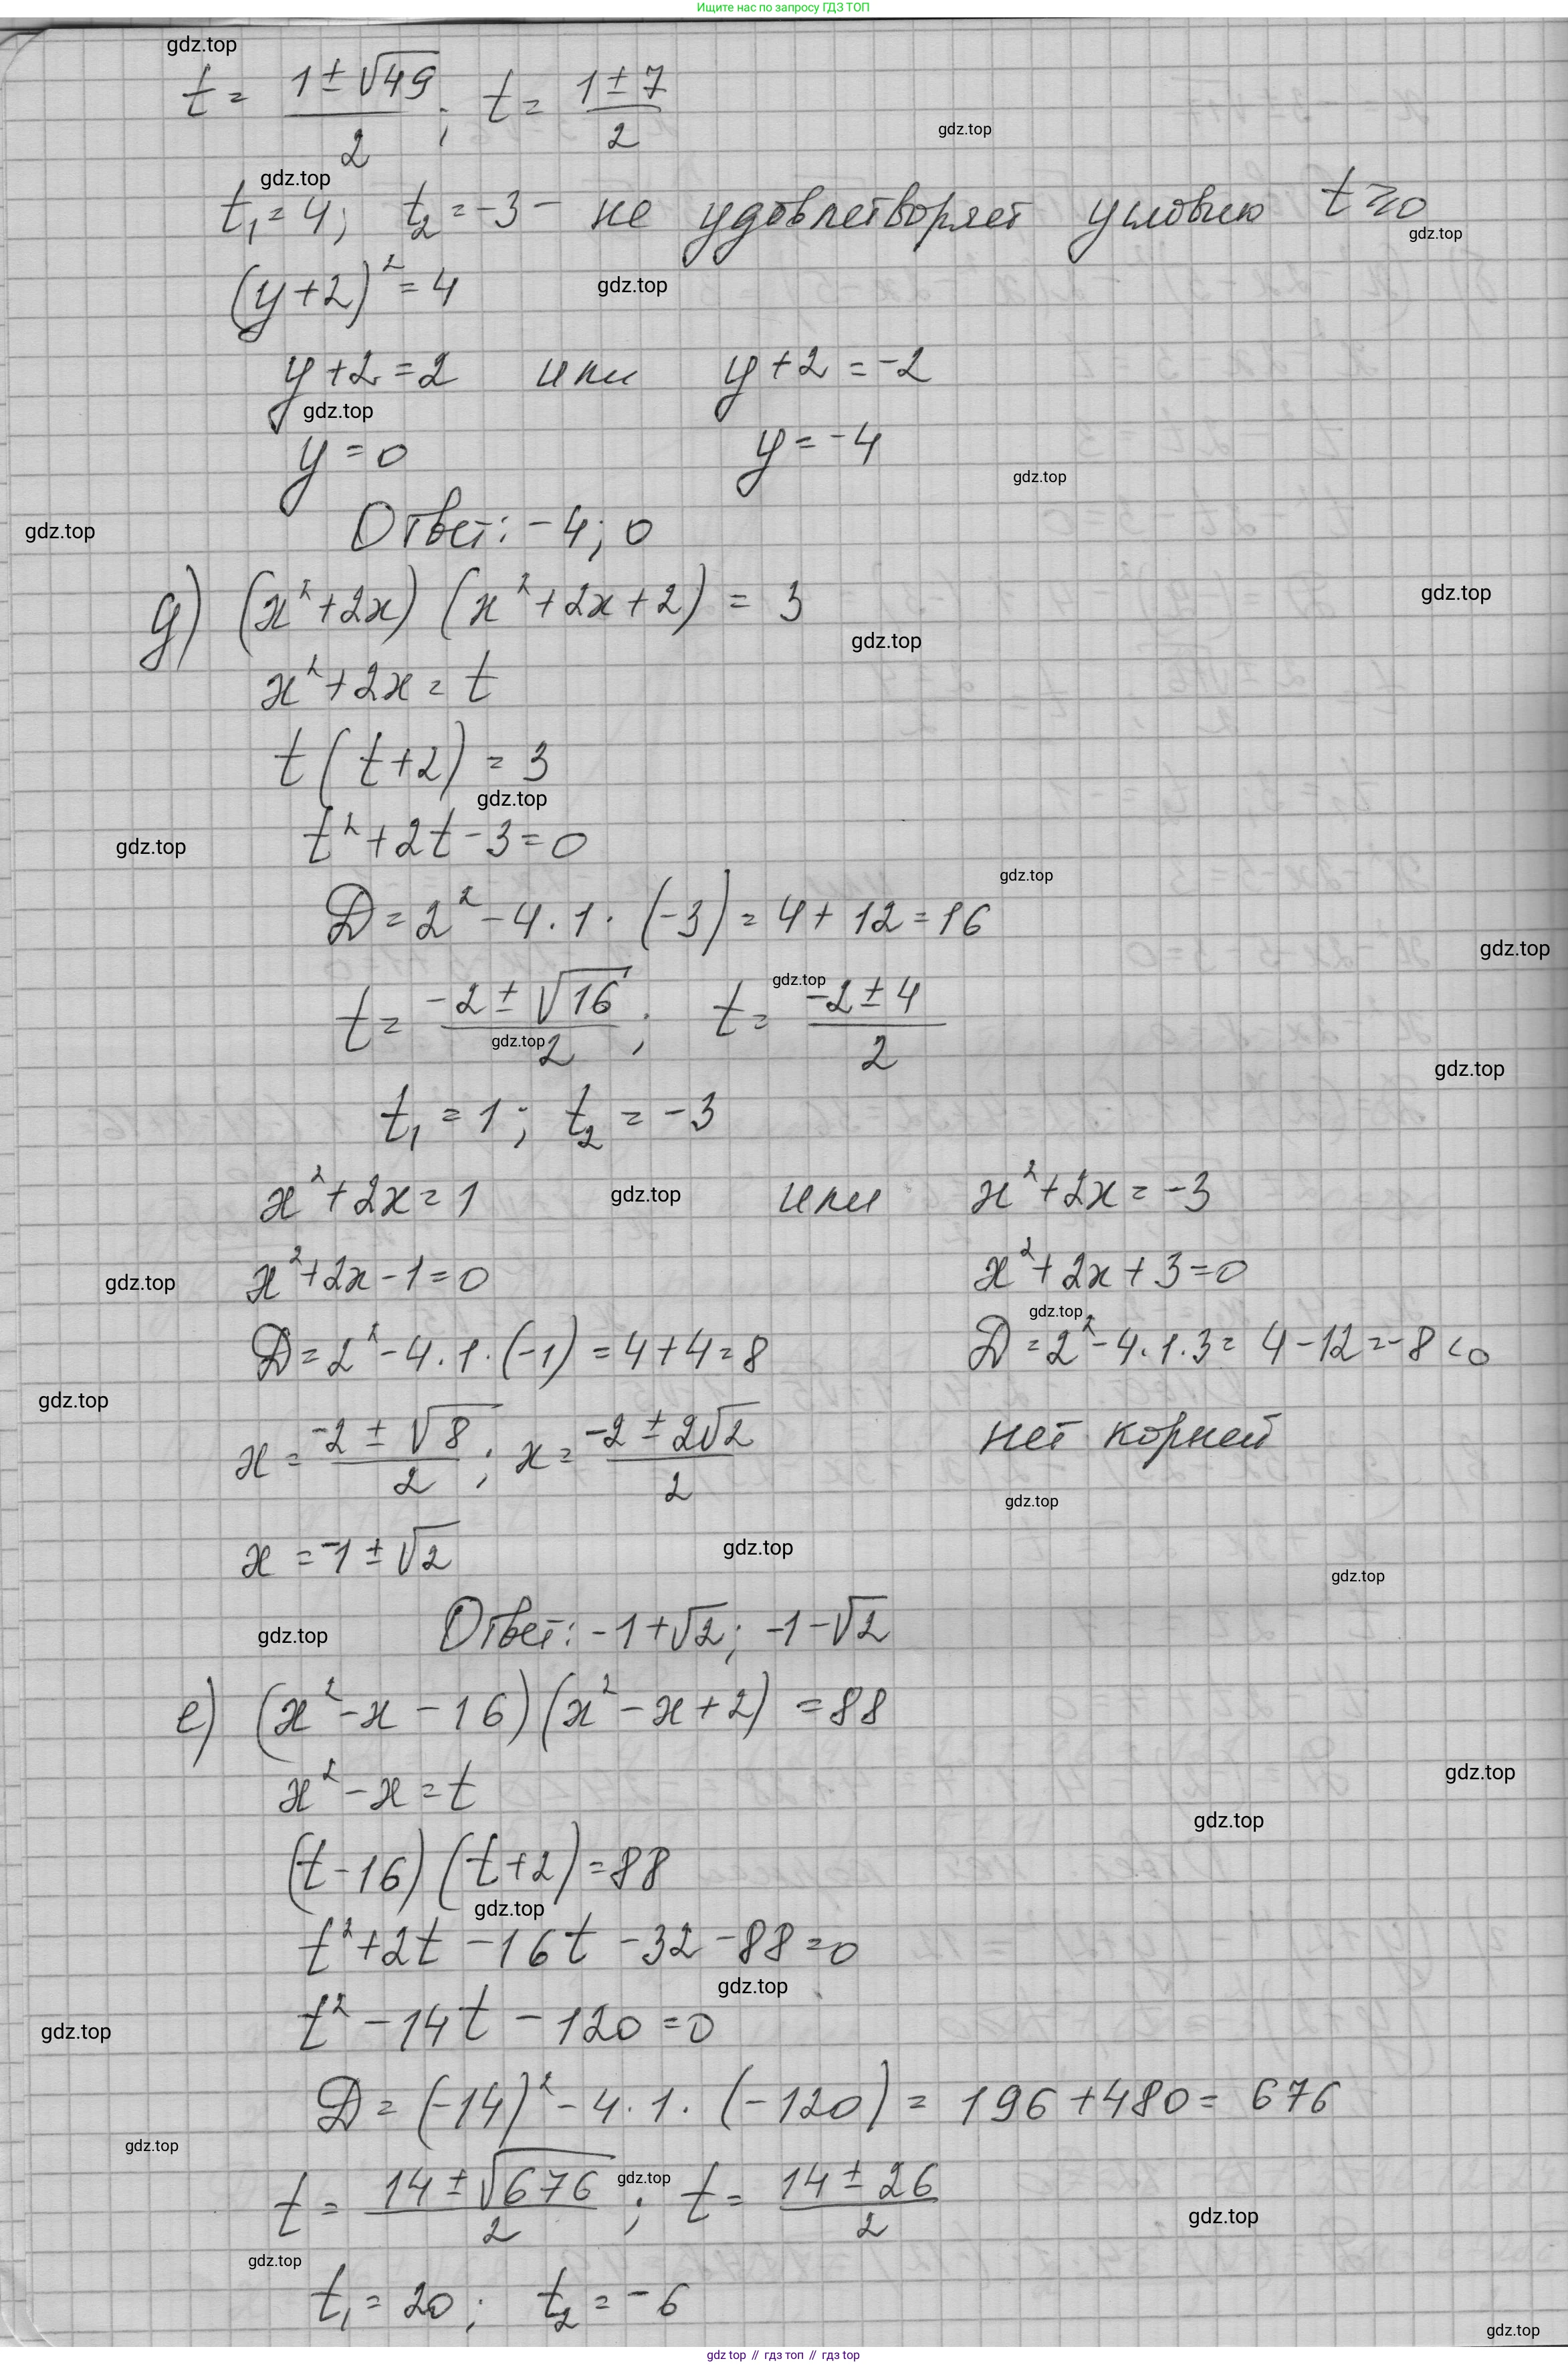 Ищите нас по запросу ГДЗ ТОП
gdz.top
t = (1 ± √49)/2 ; t = (1 ± 7)/2
gdz.top
gdz.top
t₁ = 4; t₂ = -3 - не удовлетворяет условию t ≥ 0
gdz.top
(y+2)² = 4
gdz.top
y+2 = 2 или y+2 = -2
gdz.top
y = 0 y = -4
gdz.top
Ответ: -4; 0
gdz.top
gdz.top
д) (x²+2x)(x²+2x+2) = 3
gdz.top
x²+2x = t
t(t+2) = 3
gdz.top
t²+2t-3=0
gdz.top
gdz.top
D = 2² - 4·1·(-3) = 4 + 12 = 16
gdz.top
gdz.top
t = (-2 ± √16)/2 ; t = (-2 ± 4)/2
gdz.top
gdz.top
t₁ = 1; t₂ = -3
x²+2x = 1 или x²+2x = -3
gdz.top
x²+2x-1=0 x²+2x+3=0
gdz.top
gdz.top
D = 2²-4·1·(-1) = 4+4 = 8 D = 2²-4·1·3 = 4-12 = -8 < 0
gdz.top
x = (-2 ± √8)/2 ; x = (-2 ± 2√2)/2 нет корней
gdz.top
x = -1 ± √2
gdz.top
gdz.top
Ответ: -1+√2; -1-√2
gdz.top
е) (x²-x-16)(x²-x+2) = 88
x²-x = t
gdz.top
gdz.top
(t-16)(t+2) = 88
gdz.top
t²+2t-16t-32-88=0
gdz.top
t²-14t-120=0
gdz.top
D = (-14)²-4·1·(-120) = 196+480 = 676
gdz.top
t = (14 ± √676)/2 ; t = (14 ± 26)/2
gdz.top
gdz.top
gdz.top
t₁ = 20; t₂ = -6
gdz.top
gdz top // гдз топ // гдз top